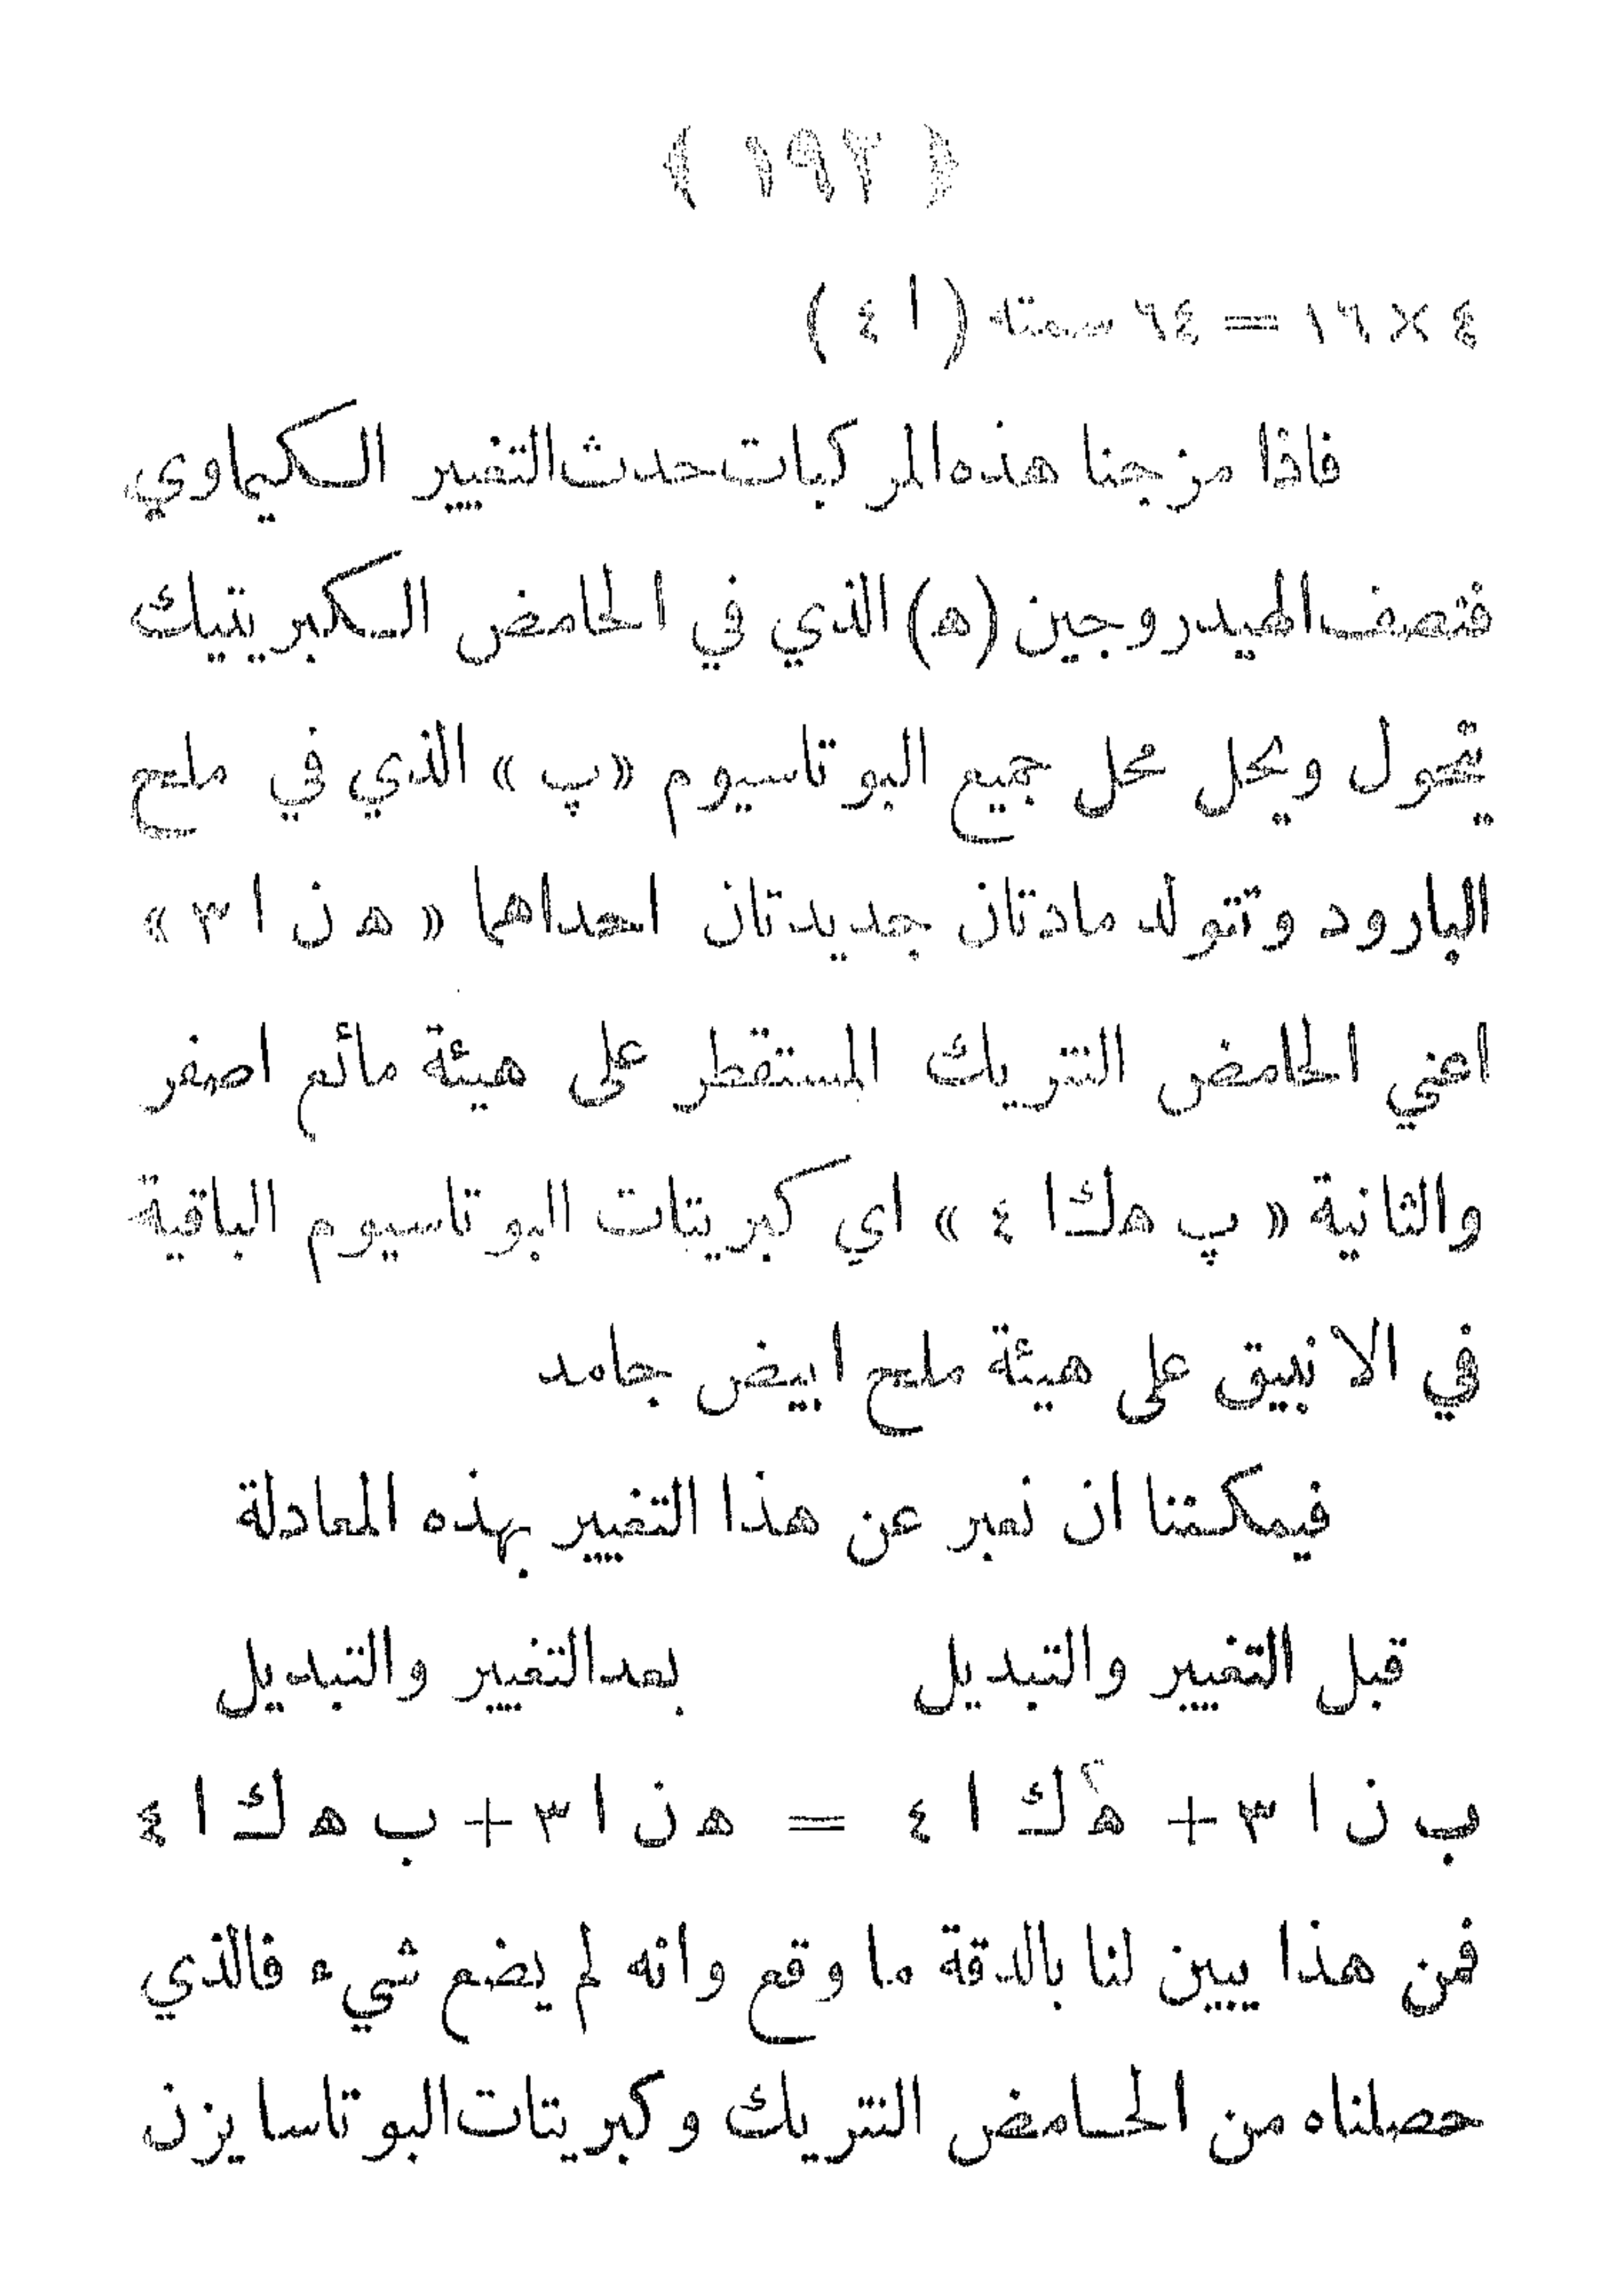 ﴿ ١٩٢ ﴾
٤ × ١٦ = ٦٤ سمته ( ا ٤ )
فاذا مزجنا هذه المركبات حدث التغيير الكيماوي
فنصف الهيدروجين (ه) الذي في الحامض الكبريتيك
يتحول ويحل محل جميع البوتاسيوم «پ» الذي في ملح
البارود وتتولد مادتان جديدتان احداهما « ه ن ا ٣ »
اعني الحامض النتريك المستقطر على هيئة مائع اصفر
والثانية « پ ه ك ا ٤ » اي كبريتات البوتاسيوم الباقية
في الانبيق على هيئة ملح ابيض جامد
فيمكننا ان نعبر عن هذا التغيير بهذه المعادلة
قبل التغيير والتبديل بعد التغيير والتبديل
ب ن ا ٣ + ه٢ ك ا ٤ = ه ن ا ٣ + ب ه ك ا ٤
فمن هذا يبين لنا بالدقة ما وقع وانه لم يضع شيء فالذي
حصلناه من الحامض النتريك وكبريتات البوتاسا يزن